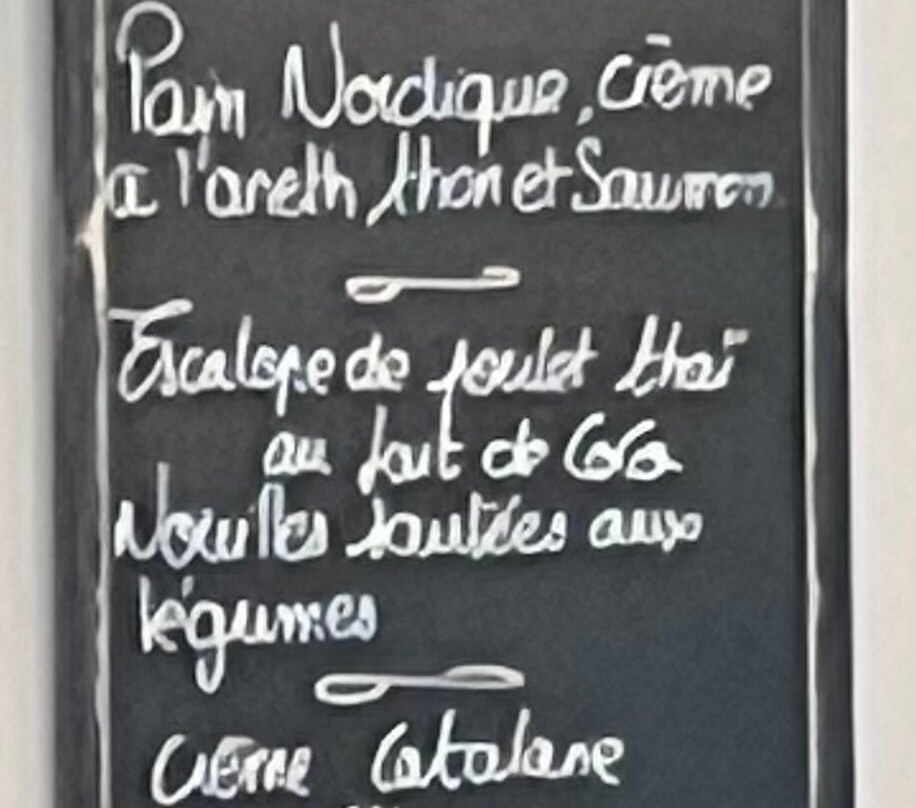 Pain Nordique, crème
a l'aneth thon et Saumon
Escalope de poulet thaï
au lait de Coco
Nouilles sautées aux
légumes
Crème Catalane